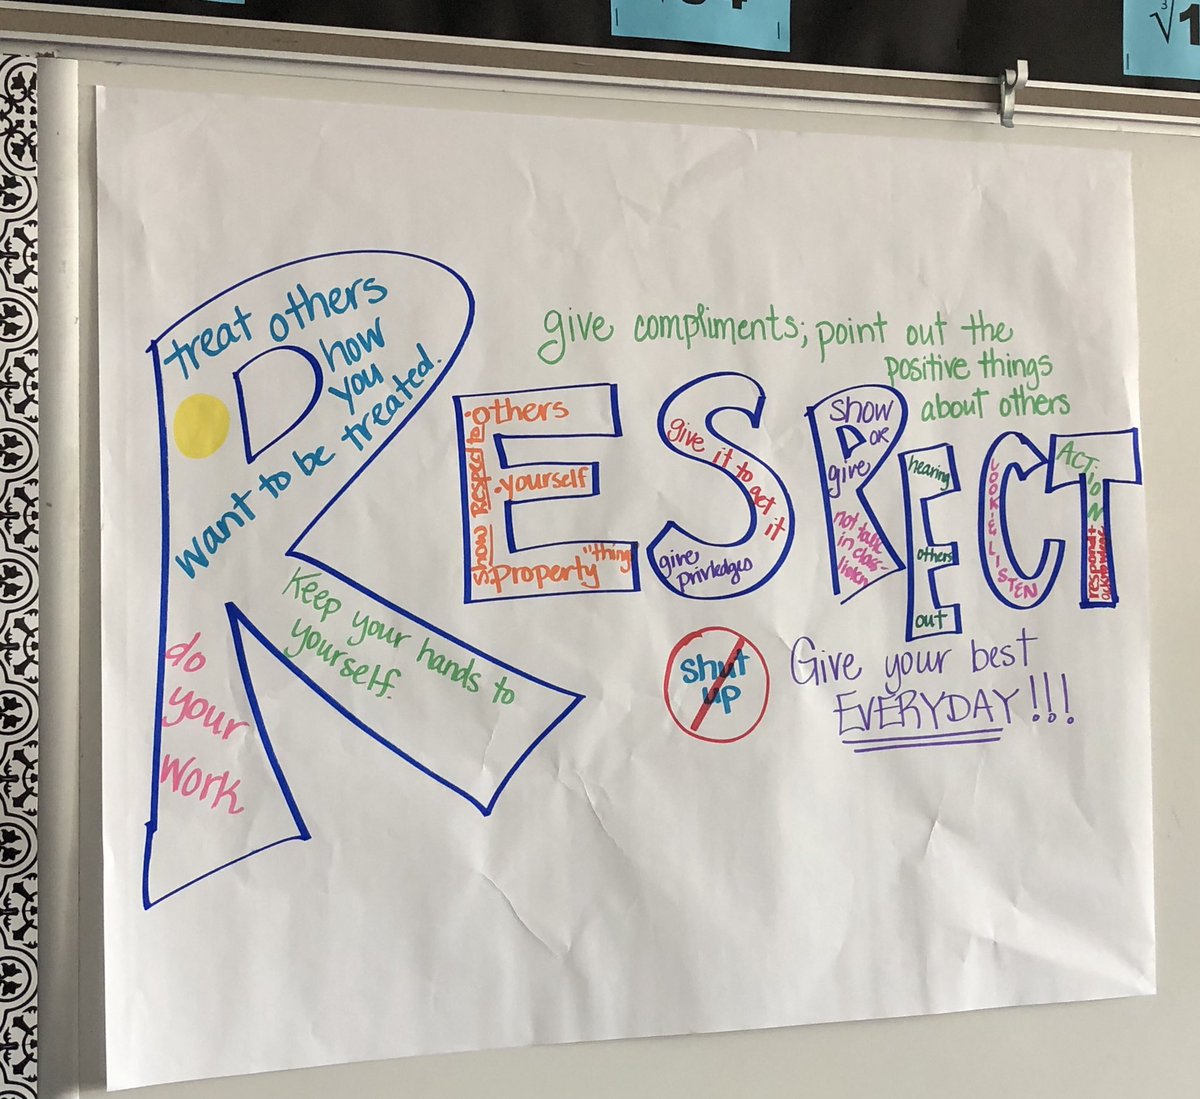 treat others
how
you
want to be treated.
Keep your hands to
yourself.
do
your
work
give compliments; point out the
positive things
about others
show Respect to
·others
·yourself
·property "thing
give it to get it
give
privledges
show
or
give
not talk
in class-
listen
hearing
others
out
LOOK & LISTEN
ACTION
shut
up
Give your best
EVERYDAY!!!
∛1